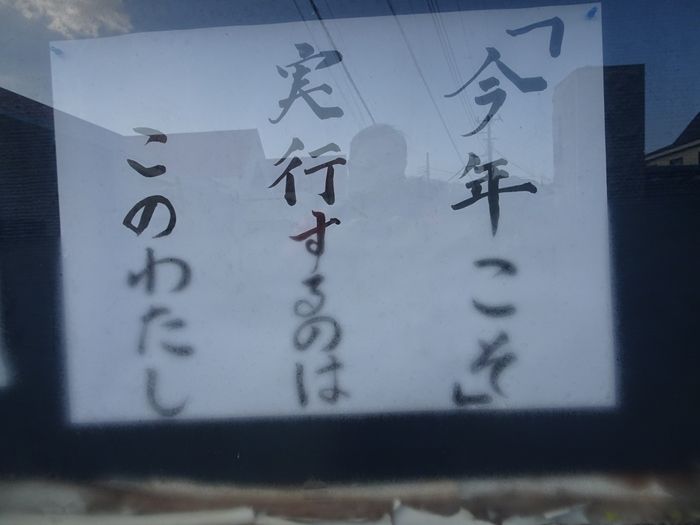 「今年こそ」
実行するのは
このわたし